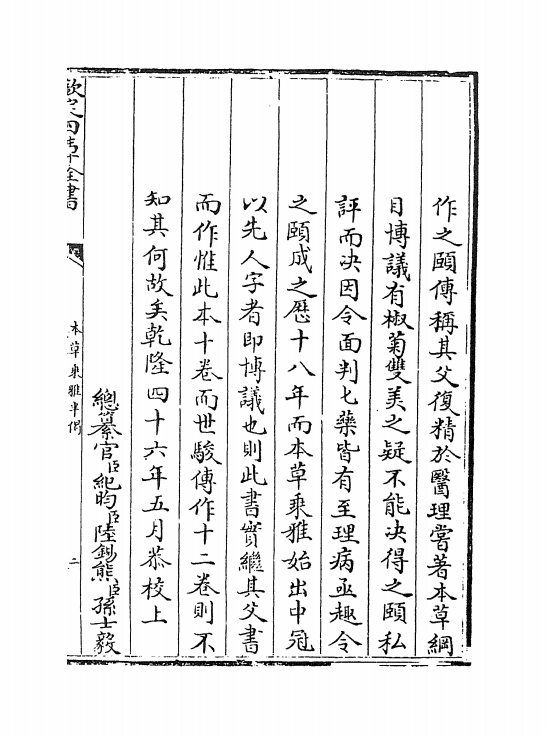 作之頤傳稱其父復精於醫理嘗著本草綱
目博議有椒菊雙美之疑不能决得之頤私
評而决因令面判七藥皆有至理病亟趣令
之頤成之歴十八年而本草乘雅始出中冠
以先人字者即博議也則此書實繼其父書
而作惟此本十卷而世駿傳作十二卷則不
知其何故矣乾隆四十六年五月恭校上
總纂官臣紀昀臣陸錫熊臣孫士毅
欽定四庫全書
本草乘雅半偈
二